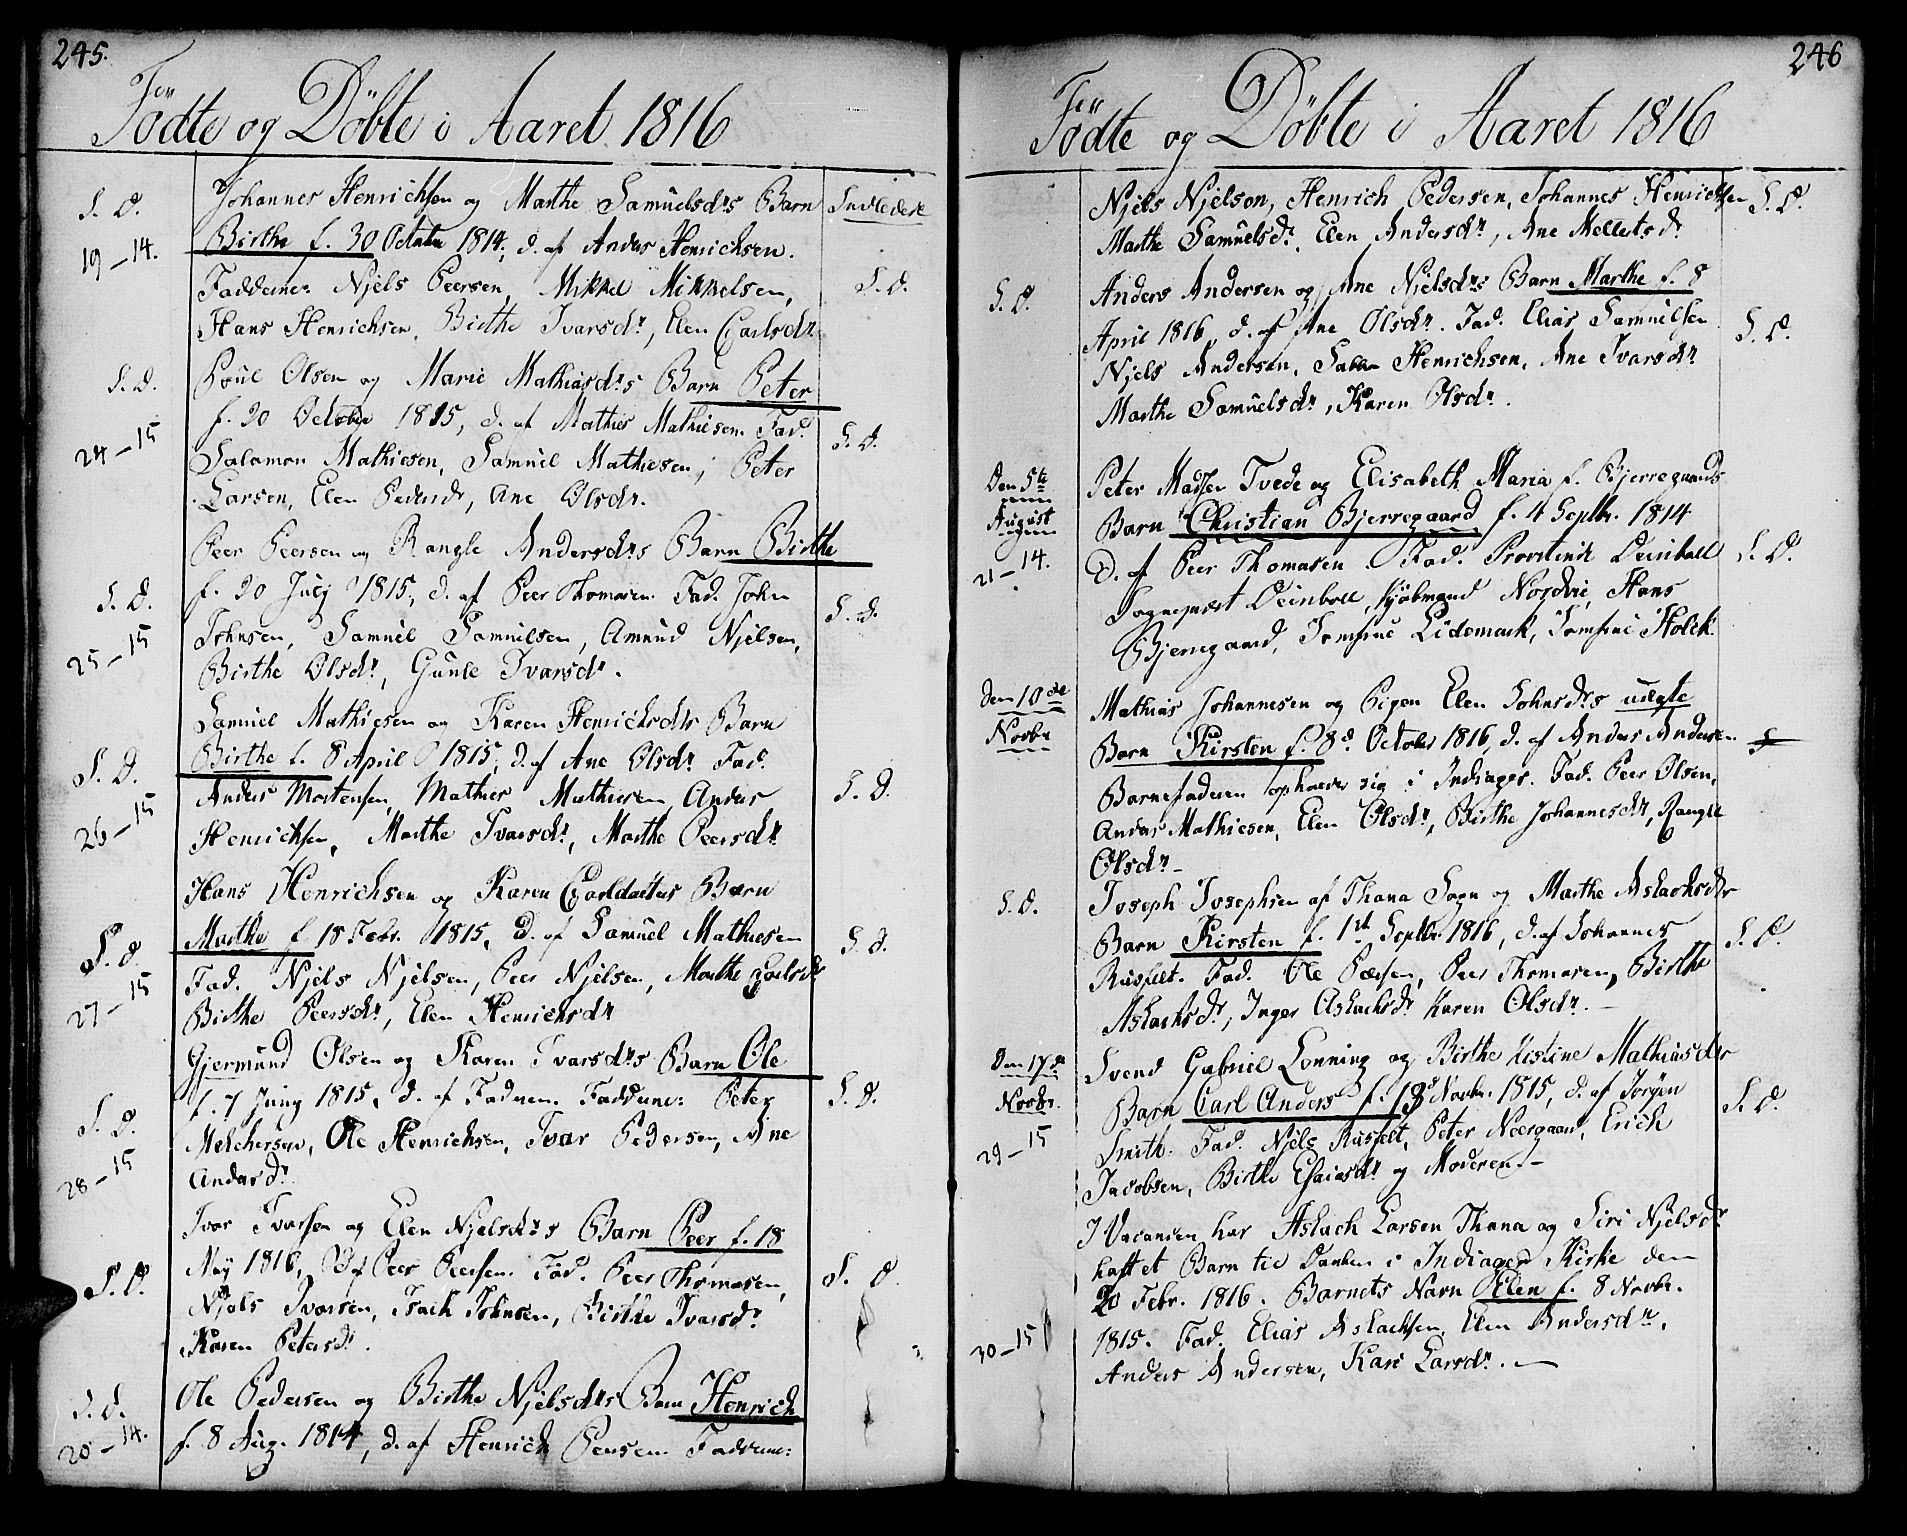 245.
Födte og Döbte i Aaret 1816
S. D.
19 – 14.
Johannes Henrichsen og Marthe Samuelsdrs Barn
Indledede
Birthe f. 30 October 1814, d. af Anders Henrichsen.
Fadderne: Njels Peersen, Mikkel Mikkelsen,
S. D.
Hans Henrichsen, Birthe Ivarsdr, Elen Carlsdr
S. D.
24 – 15
Poul Olsen og Marie Mathiasdrs Barn Peter
f. 20 October 1815, d. af Mathies Mathiesen. Fad.
S. D.
Salamon Mathiesen, Samuel Mathiesen, Peter
Larsen, Elen Pedersdr, Ane Olsdr.
Peer Peersen og Rangle Andersdrs Barn Birthe
S. D.
25 – 15
f. 20 July 1815, d. af Peer Thomasen. Fad. John
S. D.
Johnsen, Samuel Samuelsen, Amund Njelsen,
Birthe Olsdr, Gunle Ivarsdr.
Samuel Mathiesen og Karen Henrichsdrs Barn
S. D.
26 – 15
Birthe f. 8 April 1815, d. af Ane Olsdr Fad.
Anders Mortensen, Mathies Mathiesen, Anders
S. D.
Henrichsen, Marthe Ivarsdr, Marthe Peersdr
Hans Henrichsen og Karen Carldatters Barn
S. D.
27 – 15
Marthe f. 18 Febr. 1815, d. af Samuel Mathiesen
S. D.
Fad. Njels Njelsen, Peer Njelsen, Marthe Carlsdr
Birthe Peersdr, Elen Henrichsdr
Gjermund Olsen og Karen Ivarsdrs Barn Ole
S. D.
28 – 15
f. 7 Juny 1815, d. af Faderen. Fadderne: Peter
S. D.
Melchersen, Ole Henrichsen, Ivar Pedersen, Ane
Andersdr.
Ivar Ivarsen og Elen Njelsdrs Barn Peer f. 18
S. D.
May 1816, d. af Peer Peersen. Fad. Peer Thomasen,
S. D.
Njels Ivarsen, Isach Johnsen, Birthe Ivarsdr
Karen Petersdr.
S. D.
20 – 14.
Ole Pedersen og Birthe Njelsdrs Barn Henrich
f. 8 Aug. 1814, d. af Henrich Peersen. Fadderne:
246
Födte og Döbte i Aaret 1816
Njels Njelson, Henrich Pedersen, Johannes Henrichsen
S. D.
Marthe Samuelsdr, Elen Andersdr, Ane Melletsdr
S. D.
Anders Andersen og Ane Njelsdrs Barn Marthe f. 8
April 1816, d. af Ane Olsdr. Fad. Elias Samuelsen
S. D.
Njels Andersen, Henrichsen, Ane Ivarsdr
Marthe Samuelsdr, Karen Olsdr.
Den 5te
August
21 – 14.
Peter Madsen Tvede og Elisabeth Maria f. Bjerregaards
Barn Christian Bjerregaard f. 4 Septbr. 1814
D. af Peer Thomasen. Fad. Provstinde Deinboll
S. D.
Sognepræst Deinboll, Kjöbmand Nordvi, Hans
Bjerregaard, Jomfrue Lidemark, Jomfrue Holck.
Den 10de
Novbr
Mathias Johannesen og Pigen Elen Johnsdrs uægte
Barn Kirsten f. 8d October 1816, d. af Anders Andersen
Barnefaderen opholder sig i Indiager. Fad. Peer Olsen,
Anders Mathiesen, Elen Olsdr, Birthe Johannesdr, Rangle
Olsdr –
S. D.
Joseph Josephsen af Thana Sogn og Marthe Aslachsdrs
Barn Kirsten f. 1st Septbr. 1816, d. af Johannes
S. D.
Rusfelt. Fad. Ole Peersen, Peer Thomasen, Birthe
Aslachsdr, Inger Aslachsdr Karen Olsdr. –
Den 17de
Novbr.
29 – 15
Svend Gabriel Lonning og Birthe Kistine Mathiasdrs
Barn Carl Anders f. 13d Novbr. 1815, d. af Jorgen
S. D.
Smith. Fad. Njels Rusfelt, Peter Neergaard, Erich
Jacobsen, Birthe Esaiasdr og Moderen. –
I Vacancen har Aslach Larsen Thana og Siri Njelsdr
haft et Barn til Daaben i Indiager Kirke den
20 Febr. 1816. Barnets Navn Elen f. 8 Novbr.
30 – 15
1815. Fad. Elias Aslachsen, Elen Andersdr,
Anders Andersen, Kari Larsdr. –